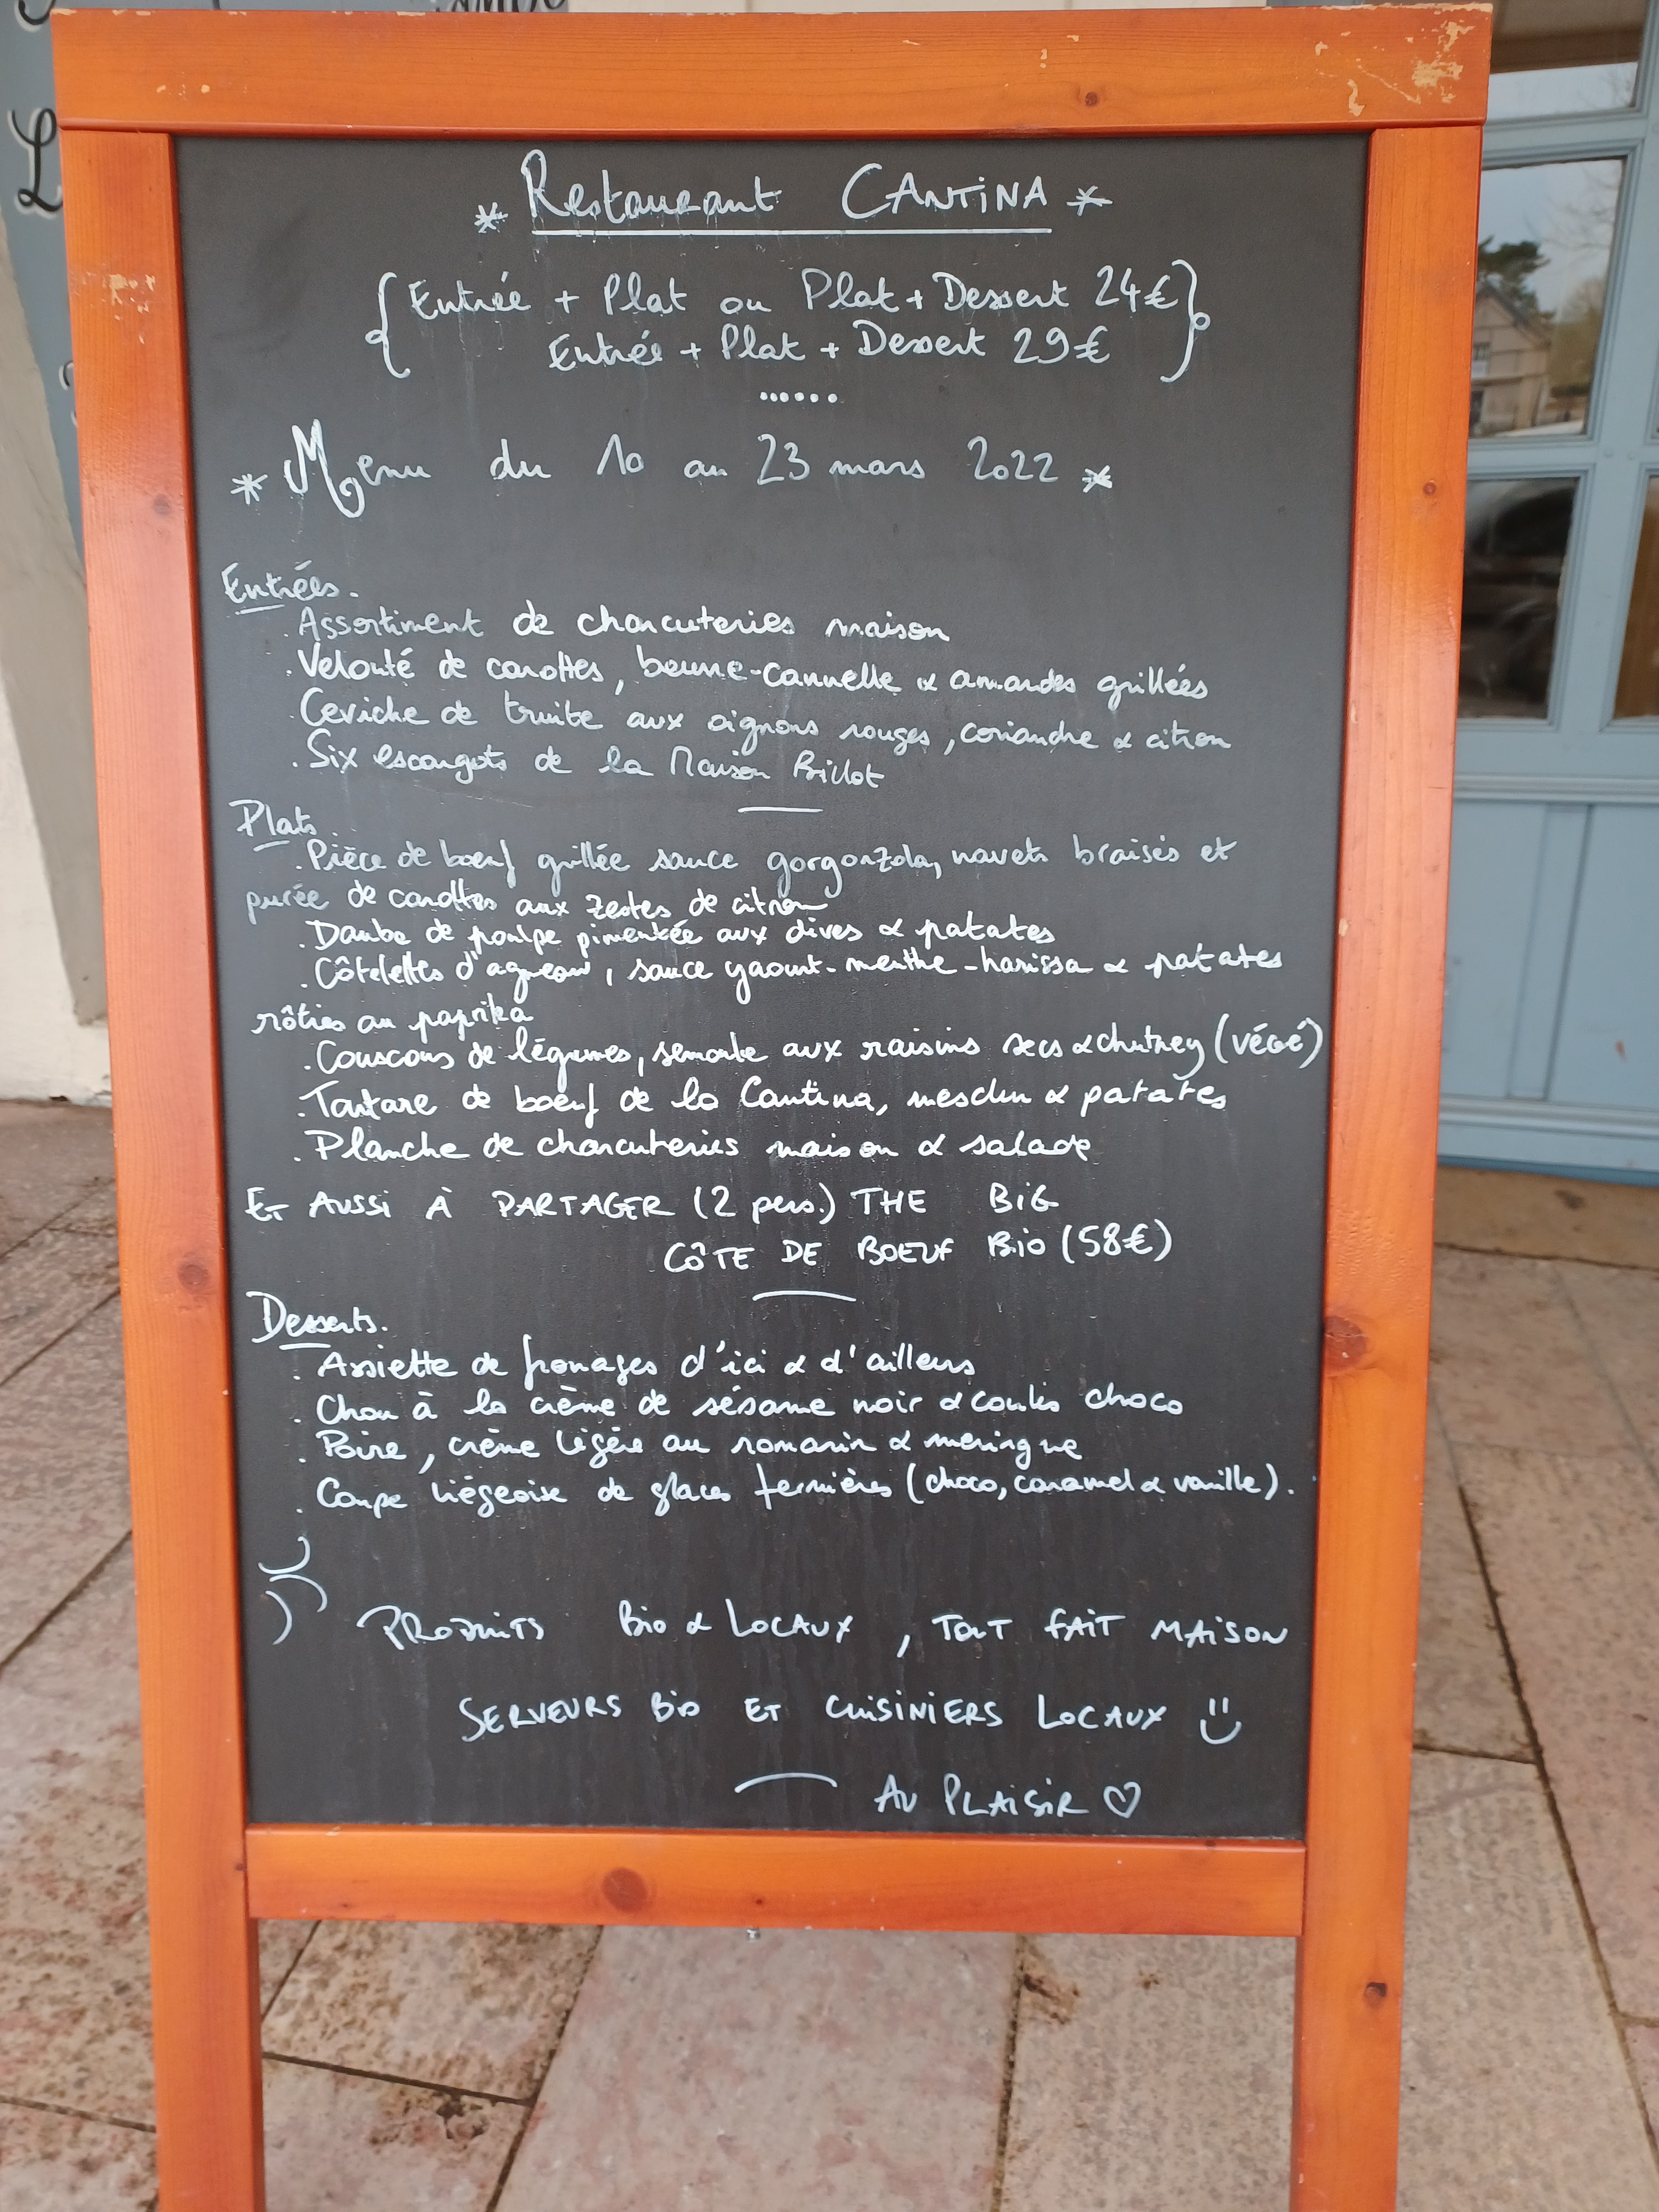 * Restaurant CANTINA *
{Entrée + Plat ou Plat + Dessert 24€}
Entrée + Plat + Dessert 29€
......
* Menu du 10 au 23 mars 2022 *
Entrées.
. Assortiment de charcuteries maison
. Velouté de carottes, beurre-cannelle & amandes grillées
. Ceviche de truite aux oignons rouges, coriandre & citron
. Six escargots de la Maison Billot
Plats
. Pièce de boeuf grillée sauce gorgonzola, navets braisés et
purée de carottes aux zestes de citron
. Daube de poulpe pimentée aux olives & patates
. Côtelettes d'agneau, sauce yaourt-menthe-harissa & patates
rôties au paprika
. Couscous de légumes, semoule aux raisins secs & chutney (VÉGÉ)
. Tartare de boeuf de la Cantina, mesclun & patates
. Planche de charcuteries maison & salade
ET AUSSI À PARTAGER (2 pers.) THE BIG
CÔTE DE BOEUF BIO (58€)
Desserts.
. Assiette de fromages d'ici & d'ailleurs
. Chou à la crème de sésame noir & coulis choco
. Poire, crème légère au romarin & meringue
. Coupe liégeoise de glaces fermières (choco, caramel & vanille).
PRODUITS BIO & LOCAUX, TOUT FAIT MAISON
SERVEURS BIO ET CUISINIERS LOCAUX
AU PLAISIR ♡